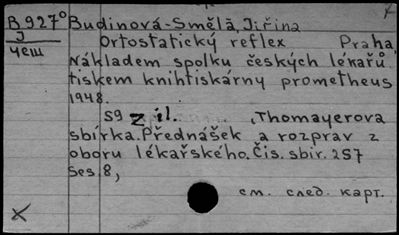 B 927° Budinová-Smělá, Jiřina
J
чеш
Ortostatický reflex Praha,
Nákladem spolku českých lékařů,
tiskem knihtiskárny prometheus
1948.
59 z il. , Thomayerova
sbírka. Přednášek a rozprav z
oboru lékařského. Čis. sbir. 257
Ses. 8,
см. след. карт.